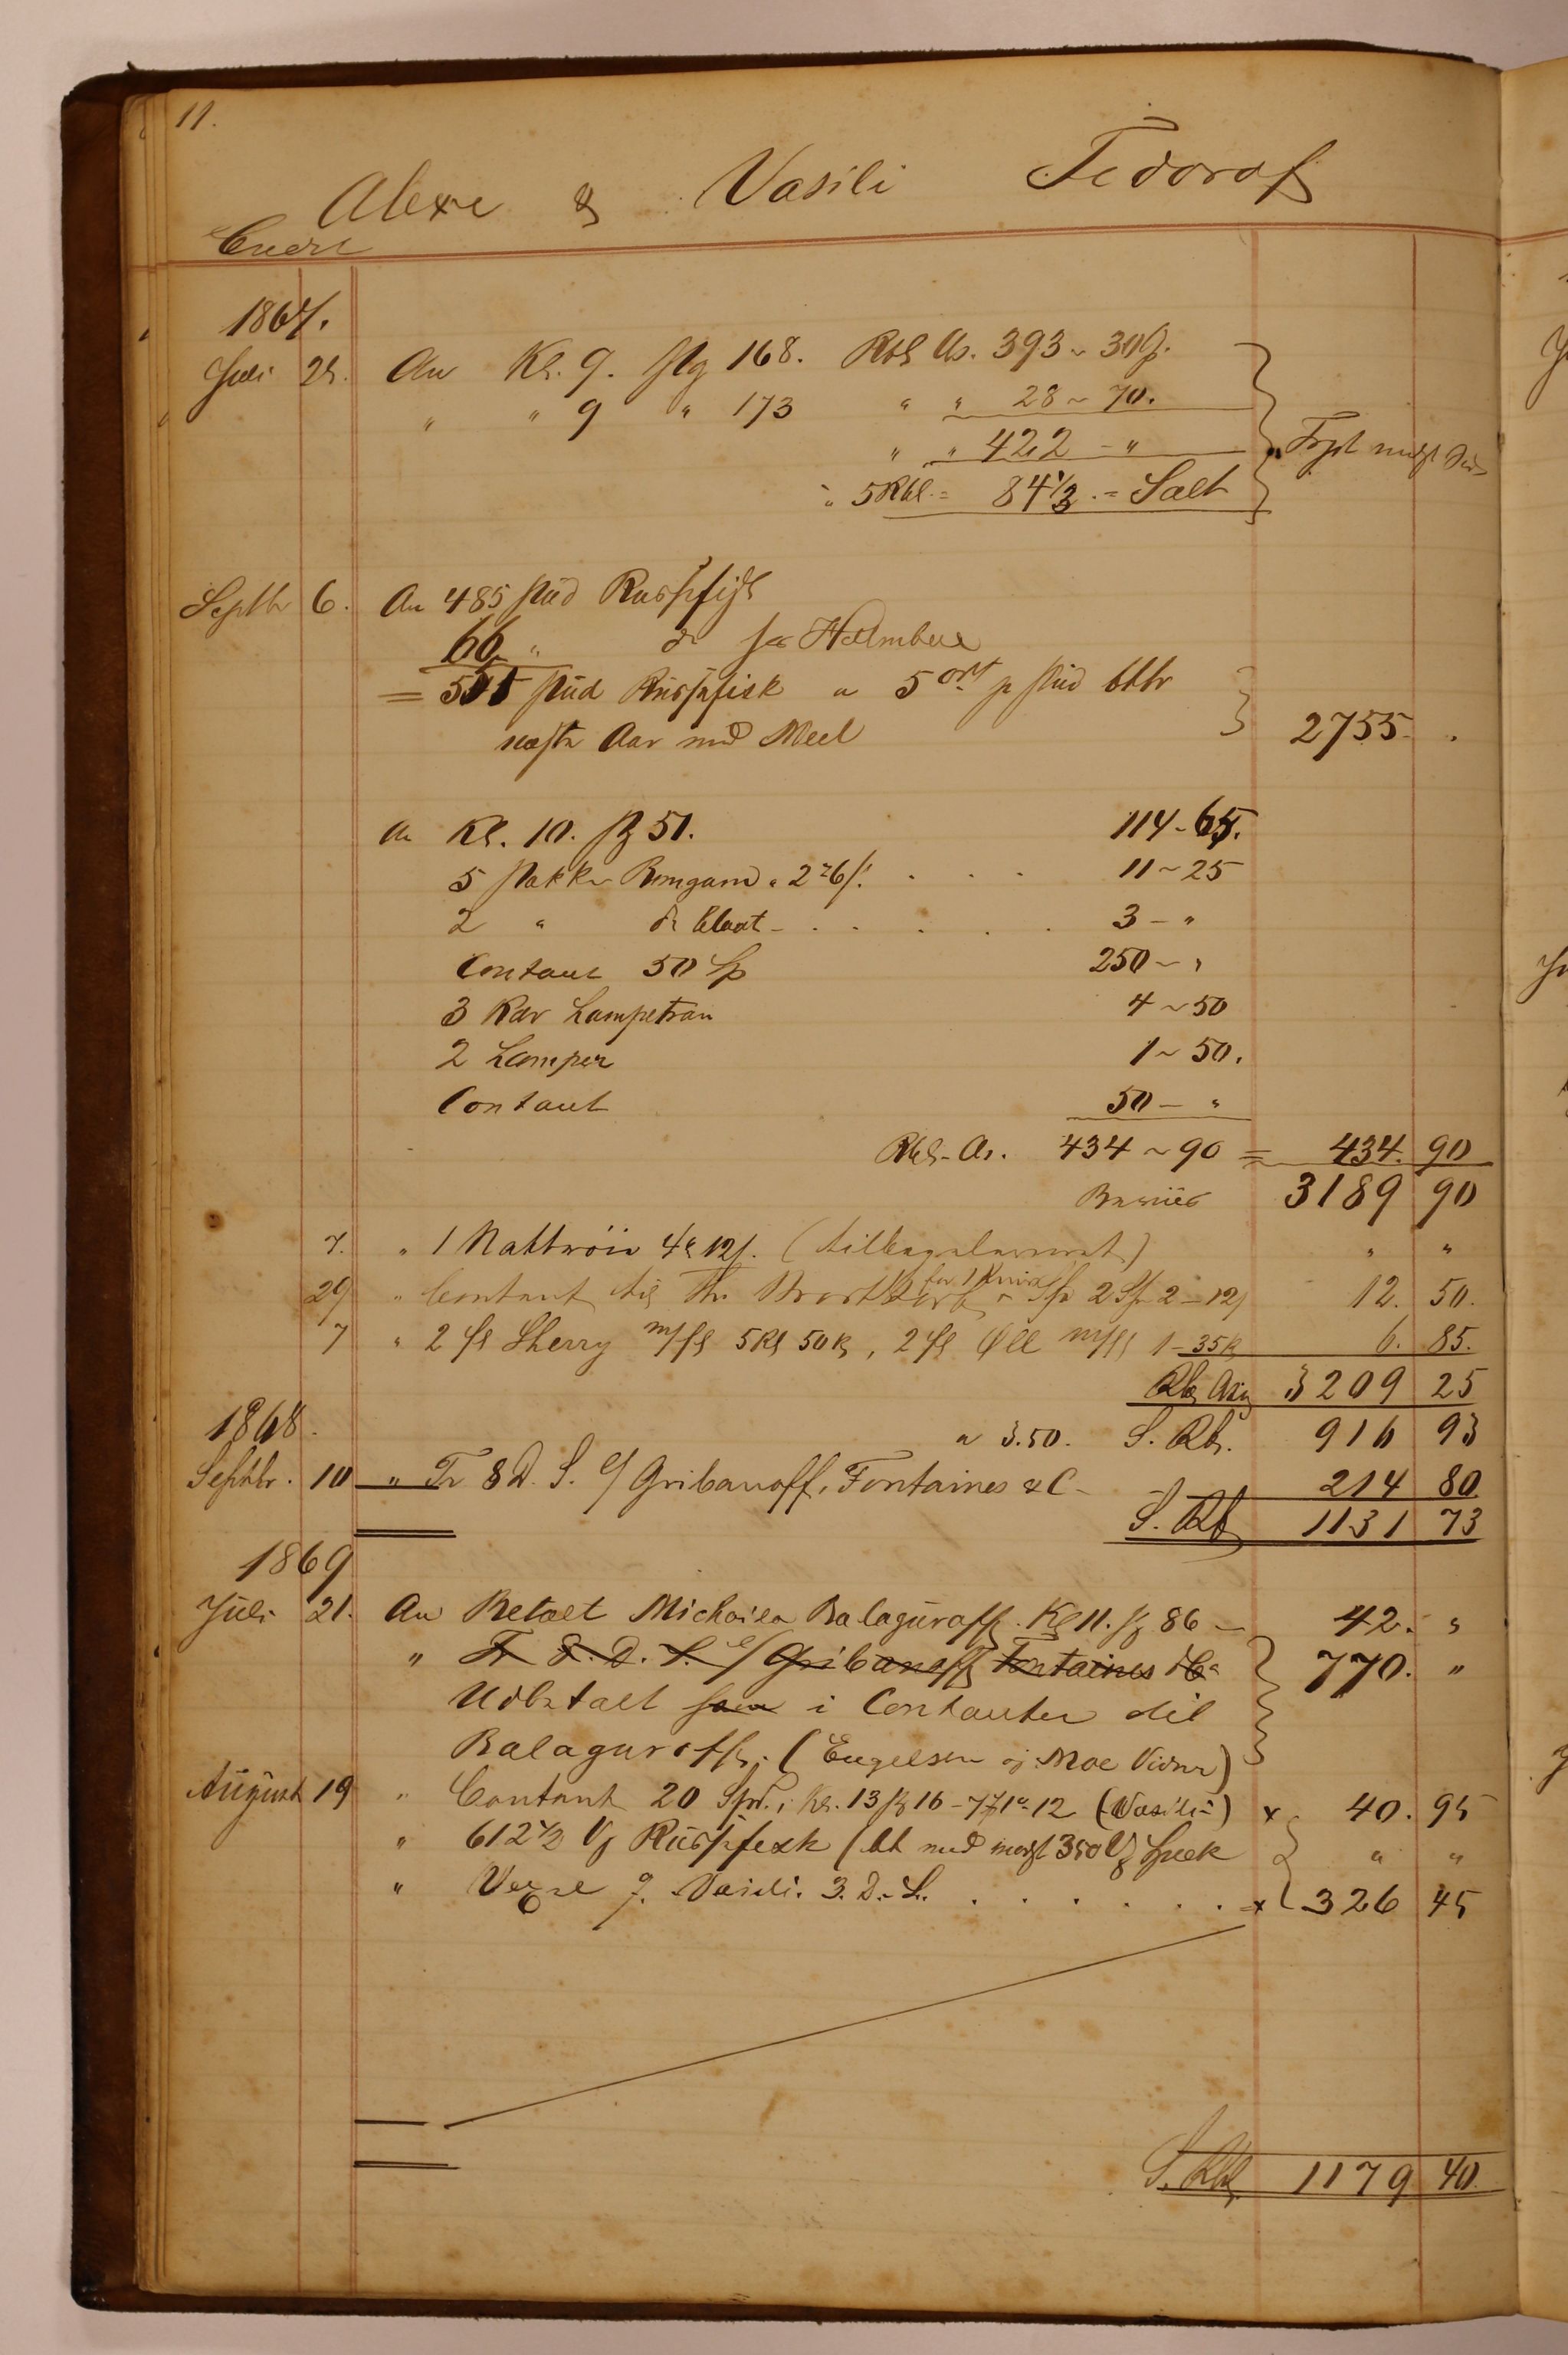 11.
Alexe & Vasili Fedorof
Credit
1867.
Juli 29. An Kl. 9. pag 168. Rbl As. 393 ~ 30
" " " 9 " 173 " " 28 ~ 70.
" " 422 - "
5 Rbl = 84 1/3 = Salt
Septbr 6. An 485 pud Rusfisk
66 " do fra Holmbue
= 551 pud Rusfisk a 5 ort p pud
næste Aar med Meel 2755 .
An Kl. 10. pg 51. 114 - 65.
5 pakker Rengarn 11 ~ 25
2 " do blaat - 3 - "
Contant 50 Sp 250 ~ "
3 Kar Lampetran 4 ~ 50
2 Lamper 1 ~ 50.
Contant 50 - "
Rbl. As. 434 ~ 90 = 434. 90
3189 90
7. " 1 Nattrøie 4 12 (tilbageleveret) " "
29 " Contant til 2 - 12 12. 50.
7 " 2 fl Sherry m/fl 5 Rl 50 K, 2 fl Øll m/fl 1 - 35 K 6. 85.
Rb Asig 3209 25
a 3.50. S. Rb. 916 93
1868.
Septbr. 10 " Tr 8 D. S. Gribanoff, Fontaines & C - 214 80
S. Rb 1131 73
1869
Juli 21. An Betalt Michaila Balaguroff Kl 11. pg 86 - 42. "
" Tr 8. D. S. Gribanoff Fontaines & Co 770. "
Udbetalt som i Contanter til
Balaguroff. (Engelsen og Moe Vidner)
August 19 " Contant 20 Spd. i Kl. 13 pg 16 - 12 (Vasili) x 40. 95
" 612 1/2 Vg Rusfisk 350 Vg " "
" Vexel Vasili. 3. D. S. x 326 45
S. Rbl. 1179 40.